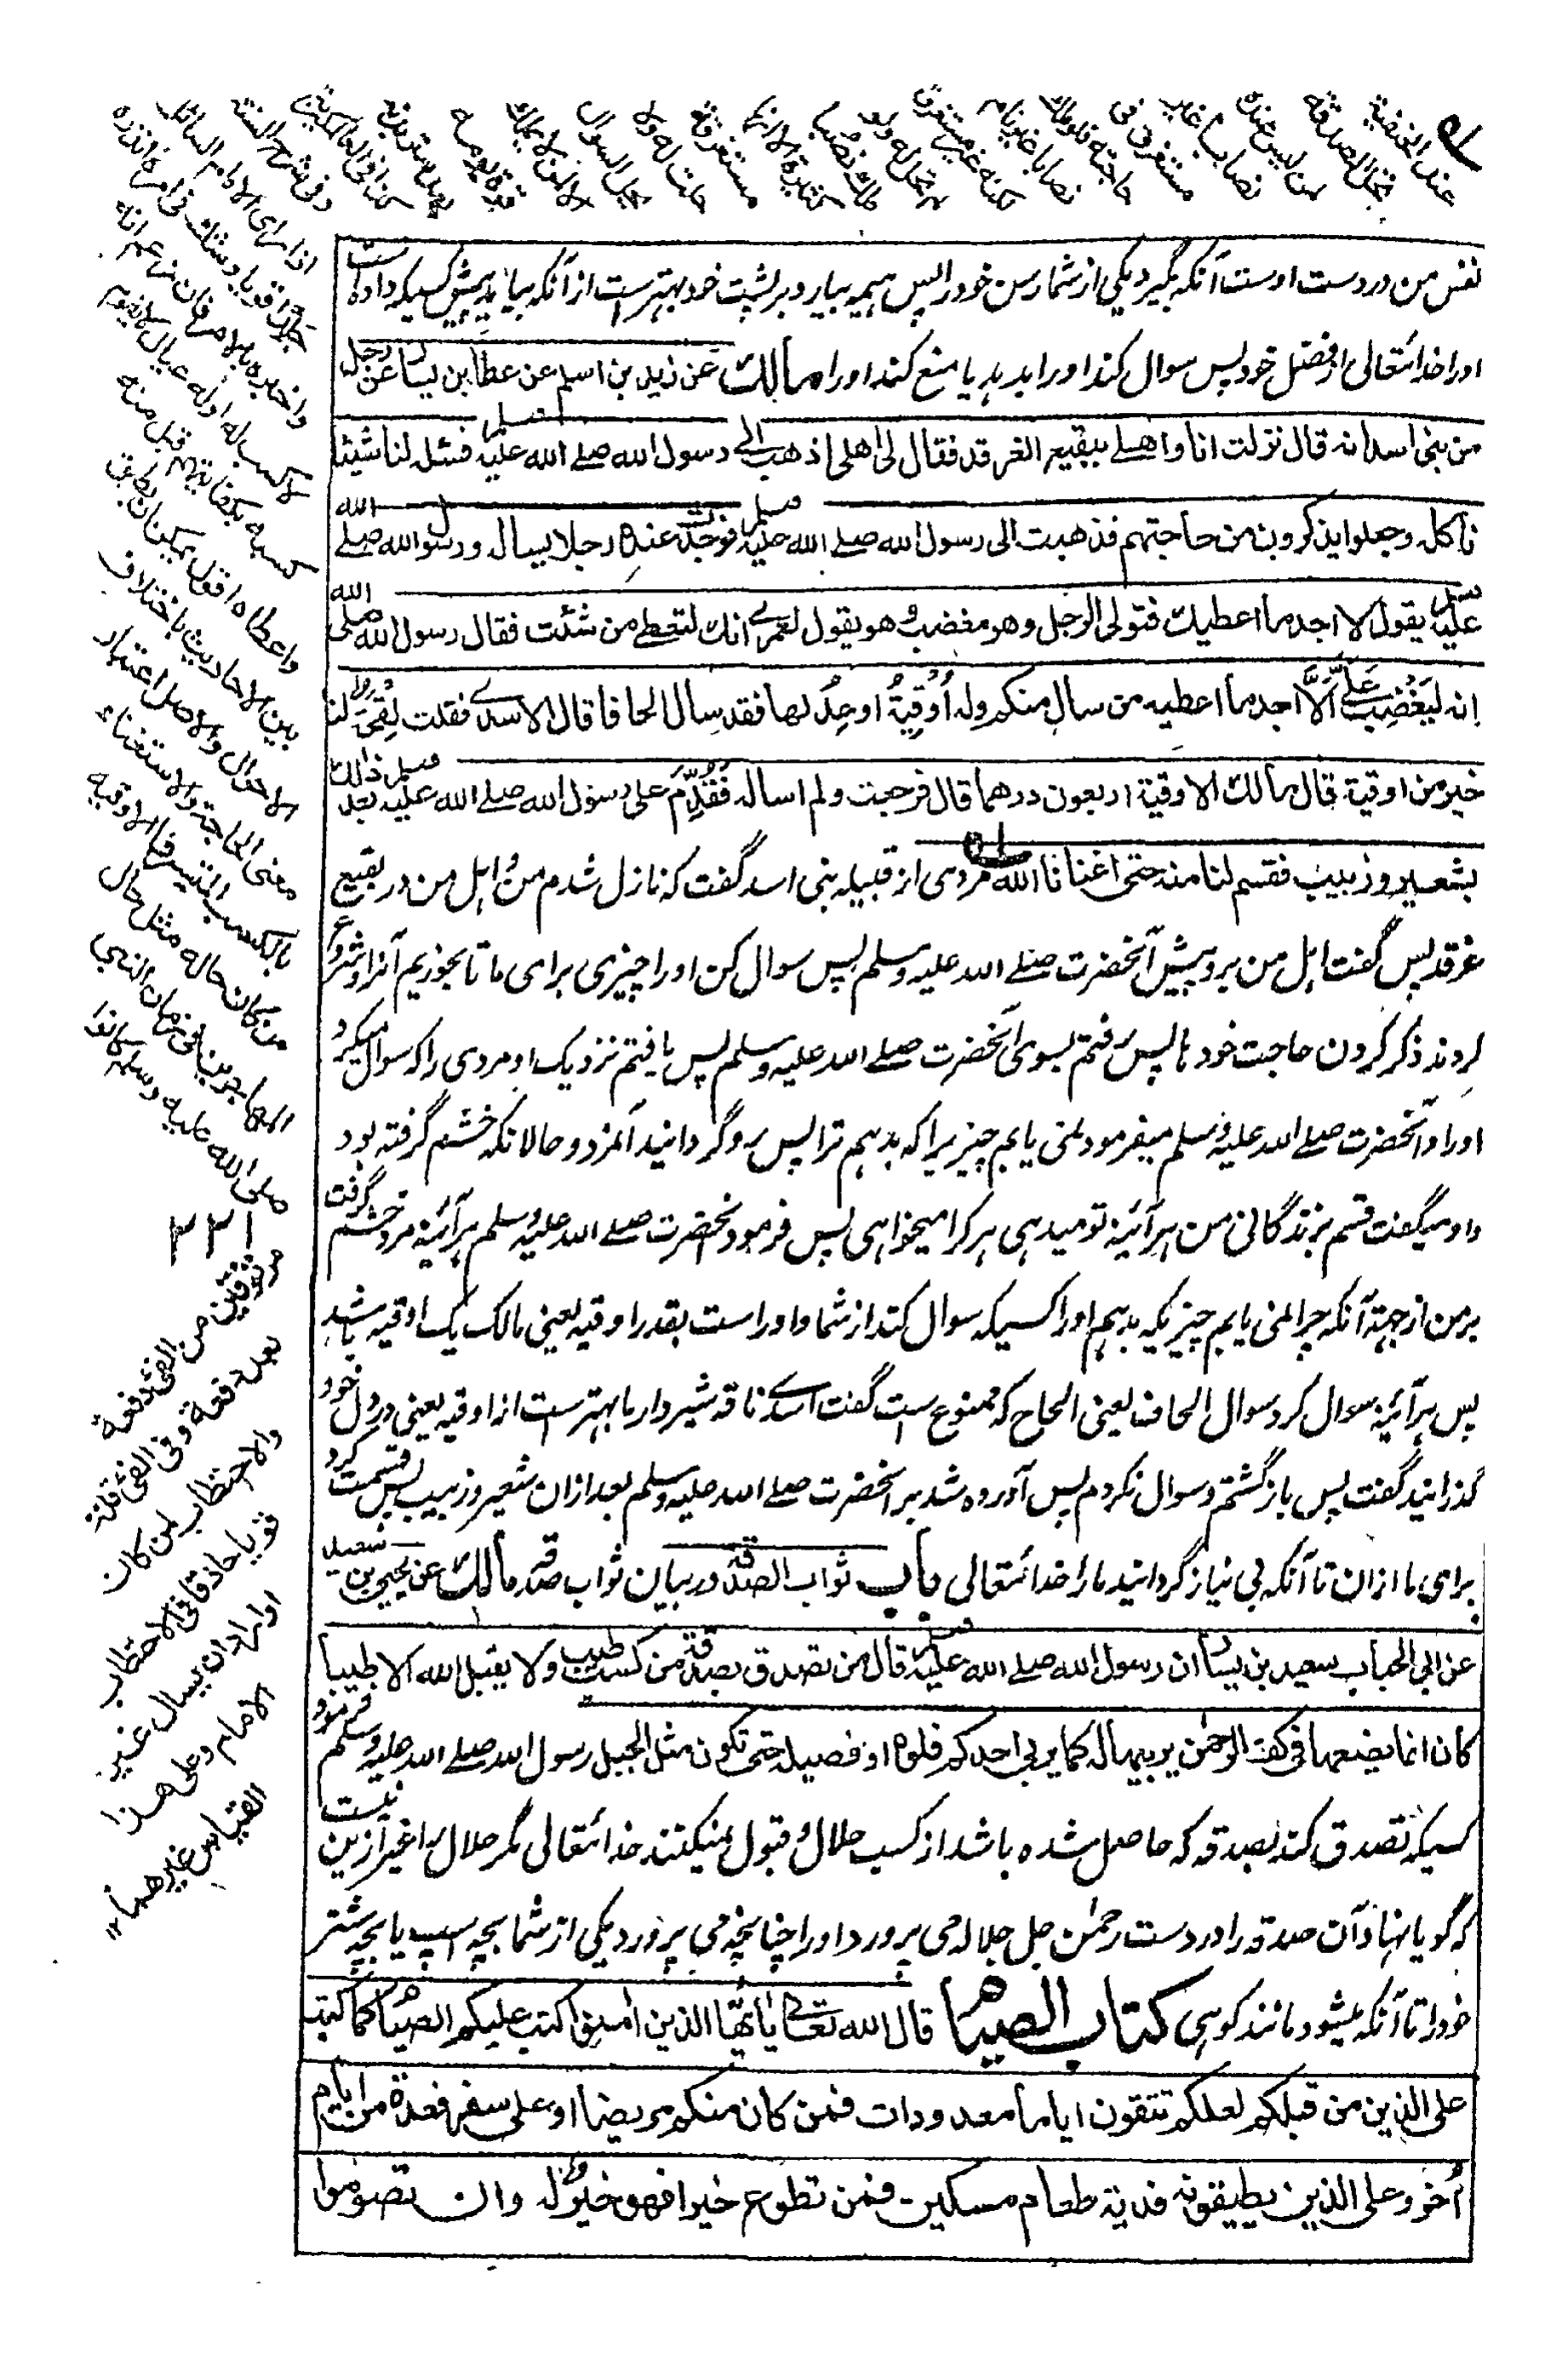 نفس من در دست اوست آنکه بگیرد یکی از شما رسن خود را پس هیمه بیارد بر پشت خود بهتر ست از آنکه بیاید پیش کسیکه داده است
اورا خدا تعالی از فضل خود پس سوال کند اورا بدهد یا منع کند اورا مالك عن زيد بن اسلم عن عطا بن يسار عن رجل
من بنى اسد انه قال نزلت انا واهلي ببقيع الغرقد فقال لى اهلى اذهب الى رسول الله صلے الله عليه وسلم فسئله لنا شيئا
ناكله وجعلوا يذكرون من حاجتهم فذهبت الى رسول الله صلے الله عليه وسلم فوجدت عنده رجلا يساله ورسول الله صلے الله
عليه وسلم يقول لا اجد ما اعطيك فتولى الرجل وهو مغضب وهو يقول لعمرے انك لتعطے من شئت فقال رسول الله صلى الله
انه ليغضب علىّ الّا اجد ما اعطيه من سال منكم وله أوقية او عدلها فقد سال الحافا قال الاسدے فقلت لقحة لنا
خير من اوقية قال مالك الاوقية اربعون درهما قال فرجعت ولم اساله فقدم على رسول الله صلے الله عليه وسلم بعد ذالك
بشعير وزبيب فقسم لنا منه حتى اغنانا الله مردی از قبیله بنی اسد گفت که نازل شدم من و اہل من در بقیع
غرقد پس گفت اہل من برو پیش آنحضرت صلے الله علیه وسلم پس سوال کن اورا چیزی برای ما تا بخوریم آنرا و شروع
کردند ذکر کردن حاجت خود ہا پس رفتم بسوی آنحضرت صلے الله علیه وسلم پس یافتم نزدیک او مردی را که سوال میکرد
اورا و آنحضرت صلے الله علیه وسلم میفرمود نمی یابم چیزیرا که بدہم ترا پس رو گردانید آنمرد و حالانکه خشم گرفته بود
و او میگفت قسم بزندگانی من ہر آئینه تو میدہی ہر کرا میخواہی پس فرمود آنحضرت صلے الله علیه وسلم ہر آئینه مرد خشم گرفت
بر من از جهة آنکه چرا نمی یابم چیزیکه بدہم اورا کسیکه سوال کند از شما و اوراست بقدر اوقیه یعنی مالک یک اوقیه باشد
پس ہر آئینه سوال کرد سوال الحاف یعنی الحاح که ممنوع است گفت اسدے ناقه شیردار ما بهتر ست از اوقیه یعنی در دل خود
گذرانید گفت پس باز گشتم و سوال نکردم پس آورده شد بر آنحضرت صلے الله علیه وسلم بعد ازان شعیر و زبیب پس قسمت کرد
برای ما ازان تا آنکه بی نیاز گردانید مارا خدا تعالی باب ثواب الصدقة در بیان ثواب صدقه مالك عن يحيى بن سعيد
عن ابى الحباب سعيد بن يسار ان رسول الله صلے الله عليه وسلم قال من تصدق بصدقة من كسب طيب ولا يقبل الله الا طيبا
كان انما يضعها فى كف الرحمن يربيها له كما يربى احدكم فلوه او فصيله حتى تكون مثل الجبل رسول الله صلے الله علیه وسلم فرمود
کسیکه تصدق کند بصدقه که حاصل شده باشد از کسب حلال و قبول نمیکند خدا تعالی مگر حلال را غیر ازین نیست
که گویا نهاد آن صدقه را در دست رحمٰن جل جلاله می پرورد اورا چنانچه می پرورد یکی از شما بچه اسپ یا بچه شتر
خود را تا آنکه میشود مانند کوہی كتاب الصيام قال الله تعالى يٰايها الذين اٰمنوا كتب عليكم الصيام كما كتب
على الذين من قبلكم لعلكم تتقون اياما معدودات فمن كان منكم مريضا او على سفر فعدة من ايام
أخر وعلى الذين يطيقونه فدية طعام مسكين فمن تطوع خيرا فهو خير له وان تصوموا
عند الحنفية
تحل الصدقة
لمن ليس عنده
نصاب غير
مستغرق فى
حاجته فلو ملك
نصابا غير نام
لكنه غير مستغرق
تحل له ولو
ملك نصبا
كثيرة الا انها
مستغرقة
حلت له ولا
يحل السوال
الا لمن لا يملك
قوة يومه
بعد ستر بدنه
كذا فى العالمگيرية
وفى شرح السنة
اذا راى الامام السائل
جلدا قويا وشك فى امره انذره
واخبره بالامر فان زعم انه
لا كسب له او له عيال لا يقوم
كسبه بكفايتهم قبل منه
واعطاه اقول يمكن ان يطبق
بين الاحاديث باختلاف
الاحوال والاصل اعتبار
معنى الحاجة والاستغناء
بالكسب المتيسر فالاوقية
من كان حاله مثل حال
المهاجرين فى زمان النبى
صلى الله عليه وسلم كانوا
۲۲۱
مرتزقين من الفئ دفعة
بعد دفعة وفى الفئ قلة
والاحتطاب لمن كان
قويا حاذقا فى الاحتطاب
او اراد ان يسال غير
الامام وعلى هذا
القياس غيرهما